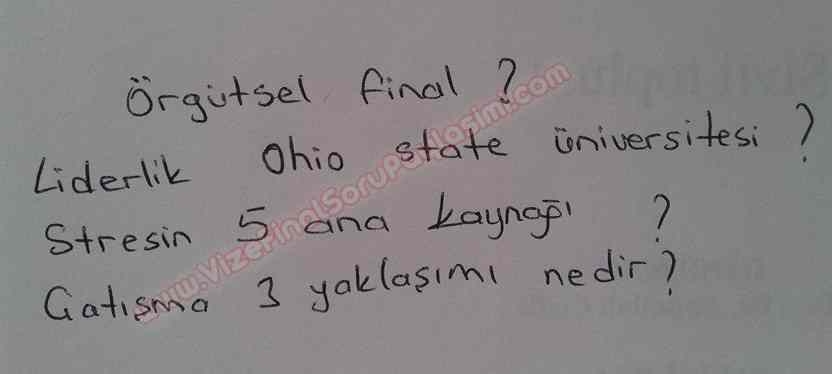 Örgütsel final ?
Liderlik Ohio state üniversitesi ?
Stresin 5 ana kaynağı ?
Çatışma 3 yaklaşımı nedir?
www.VizeFinalSoruPaylasimi.com